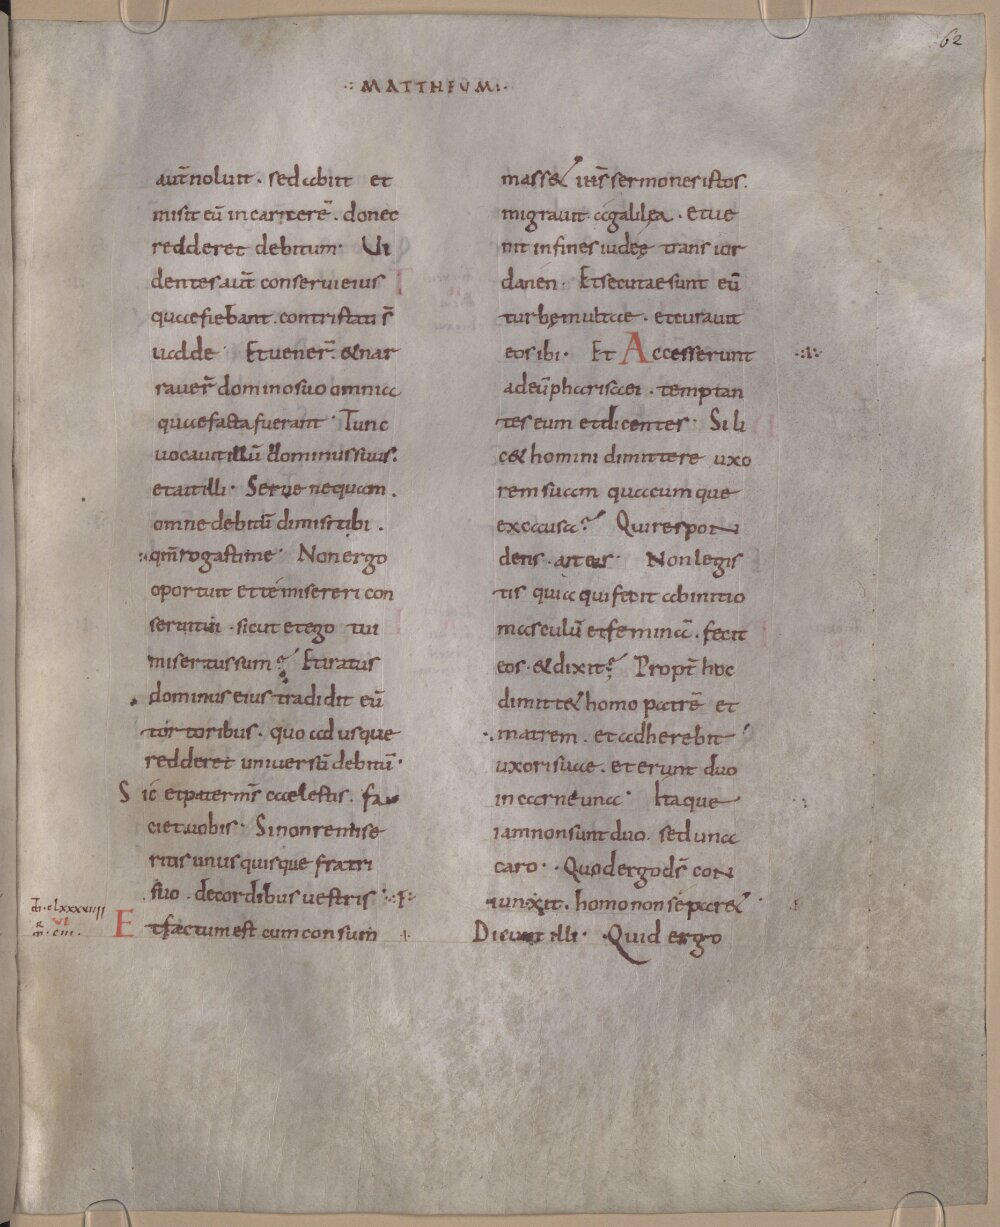 62
MATTHEUM
aut̄ noluit. sed abiit et
misit eū in carcerē. donec
redderet debitum. Ui
dentes aut̄ conserui eius
quae fiebant. contristati s̄
ualde. Et uener̄. & nar
rauer̄ domino suo omnia
quae facta fuerant. Tunc
uocauit illū dominus suus.
et ait illi. Serue nequam.
omne debitū dimisi tibi.
qm̄ rogasti me. Non ergo
oportuit et te misereri con
serui tui. sicut et ego tui
misertus sum? Et iratus
dominus eius tradidit eū
tortoribus. quo ad usque
redderet uniuersū debitū.
Sic et pater m̄s caelestis. fa
ciet uobis. Si non remise
ritis unus quisque fratri
suo. de cordibus uestris.
m̄.clxxxxiiii
R VI
m̄.ciii.
Et factum est cum consum
mass& iħs sermones istos.
migrauit a galilea. et ue
nit in fines iudeę trans ior
danen. Et secutae sunt eū
turbę multae. et curauit
eos ibi. Et Accesserunt
ad eū pharisaei. temptan
tes eum et dicentes. Si li
c& homini dimittere uxo
rem suam quacumque
ex causa? Qui respon
dens. ait eis. Non legis
tis quia qui fecit ab initio
masculū et feminā. fecit
eos. & dixit? Propt̄ hoc
dimitt& homo patrē et
matrem. et adherebit
uxori suae. et erunt duo
in carne una. Itaque
iam non sunt duo. sed una
caro. Quod ergo ds̄ con
iunxit. homo non separ&
Dicunt illi. Quid ergo